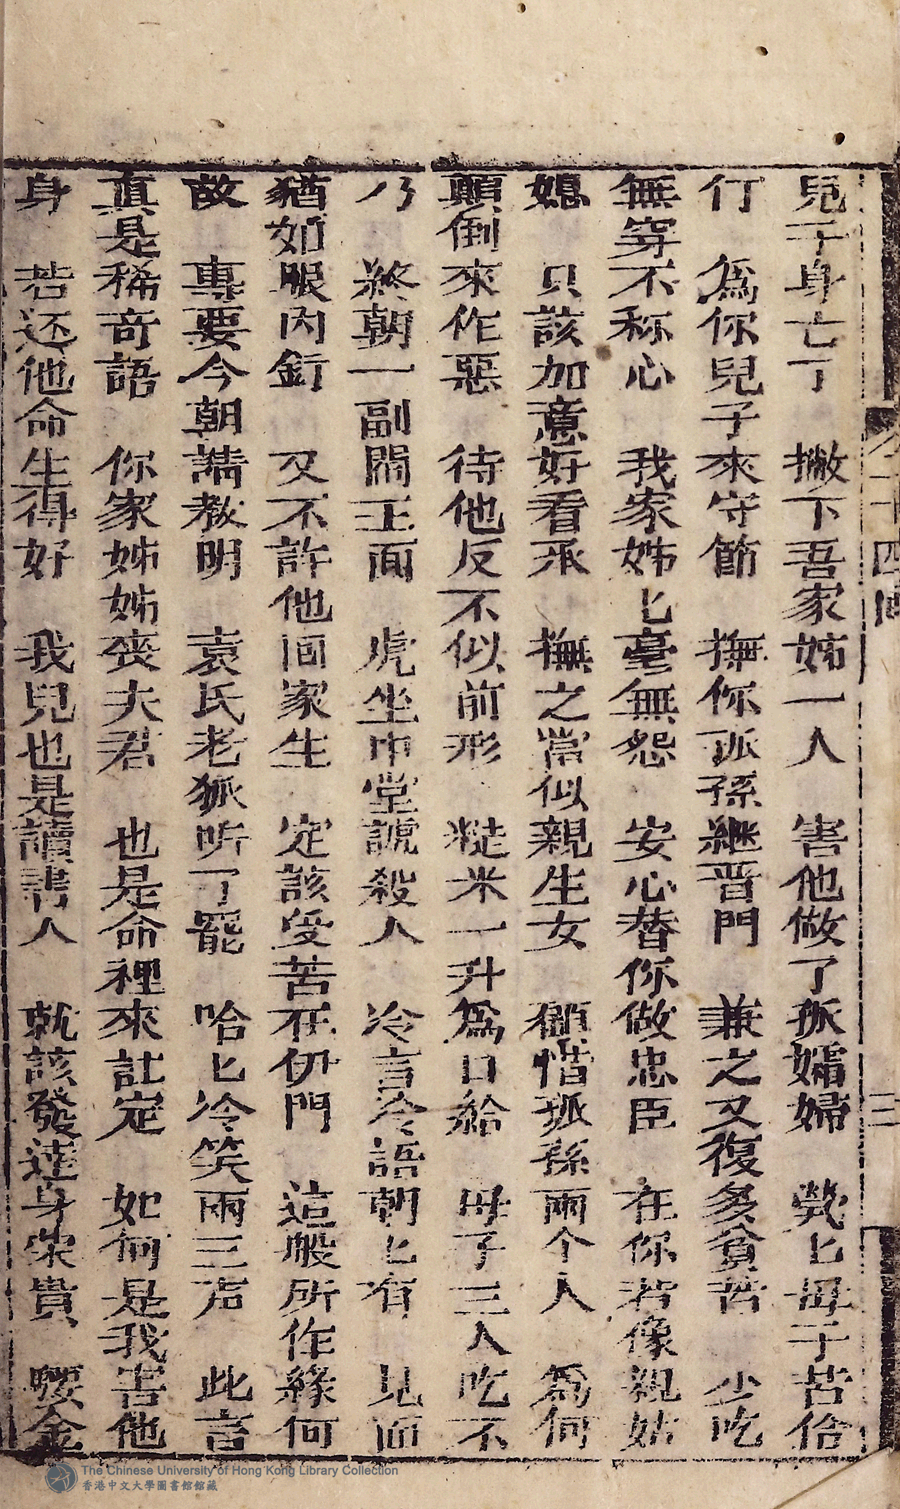 兒子身亡了　撇下吾家姊一人　害他做了孤孀婦　煢匕母子苦伶
行　為你兒子來守節　撫你孤孫継晋門　兼之又復多貧苦　少吃
無穿不称心　我家姊匕毫無怨　安心替你做忠臣　在你若像親姑
媳　只該加意好看承　撫之當似親生女　顧惜孤孫兩个人　為何
顛倒來作惡　待他反不似前形　糙米一升為口給　母子三人吃不
乃　終朝一副閻王面　虎坐中堂諕殺人　冷言冷語朝匕有　見面
猶如眼內釘　又不許他回家生　定該受苦在伊門　這般所作緣何
故　專要今朝請教明　袁氏老狐听了罷　哈匕冷笑兩三声　此言
真是稀奇語　你家姊姊喪夫君　也是命裡來註定　如何是我害他
身　若还他命生得好　我兒也是讀書人　就該發達身荣貴　腰金
卷二十四回
三
The Chinese University of Hong Kong Library Collection
香港中文大學圖書館館藏